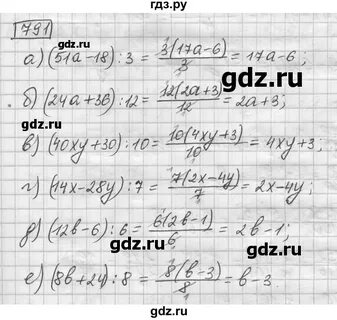 гдз.ру
791
а) (51a-18) : 3 = 3(17a-6)/3 = 17a-6;
б) (24a+36) : 12 = 12(2a+3)/12 = 2a+3;
в) (40xy+30) : 10 = 10(4xy+3)/10 = 4xy+3;
г) (14x-28y) : 7 = 7(2x-4y)/7 = 2x-4y;
д) (12b-6) : 6 = 6(2b-1)/6 = 2b-1;
е) (8b+24) : 8 = 8(b-3)/8 = b-3.
gdz.ru
gdz.ru
gdz.ru
gdz.ru
gdz.ru
gdz.ru
gdz.ru
gdz.ru
gdz.ru
гдз.ру